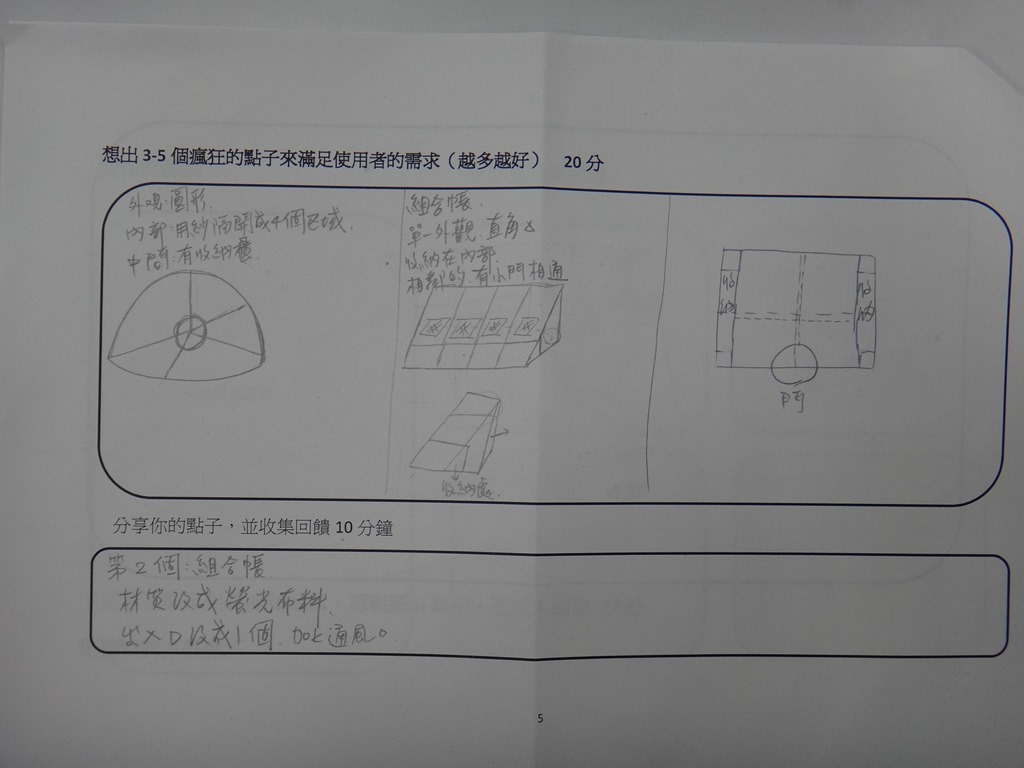 想出 3-5 個瘋狂的點子來滿足使用者的需求（越多越好） 20 分
外觀:圓形.
內部:用紗隔開成4個區域.
中間:有收納櫃.
組合帳.
單一外觀.直角
收納在內部.
相鄰的.有小門相通
收納處.
收納
收納
門
分享你的點子，並收集回饋 10 分鐘
第2個:組合帳
材質改成螢光布料.
出入口改成1個.加上通風。
5